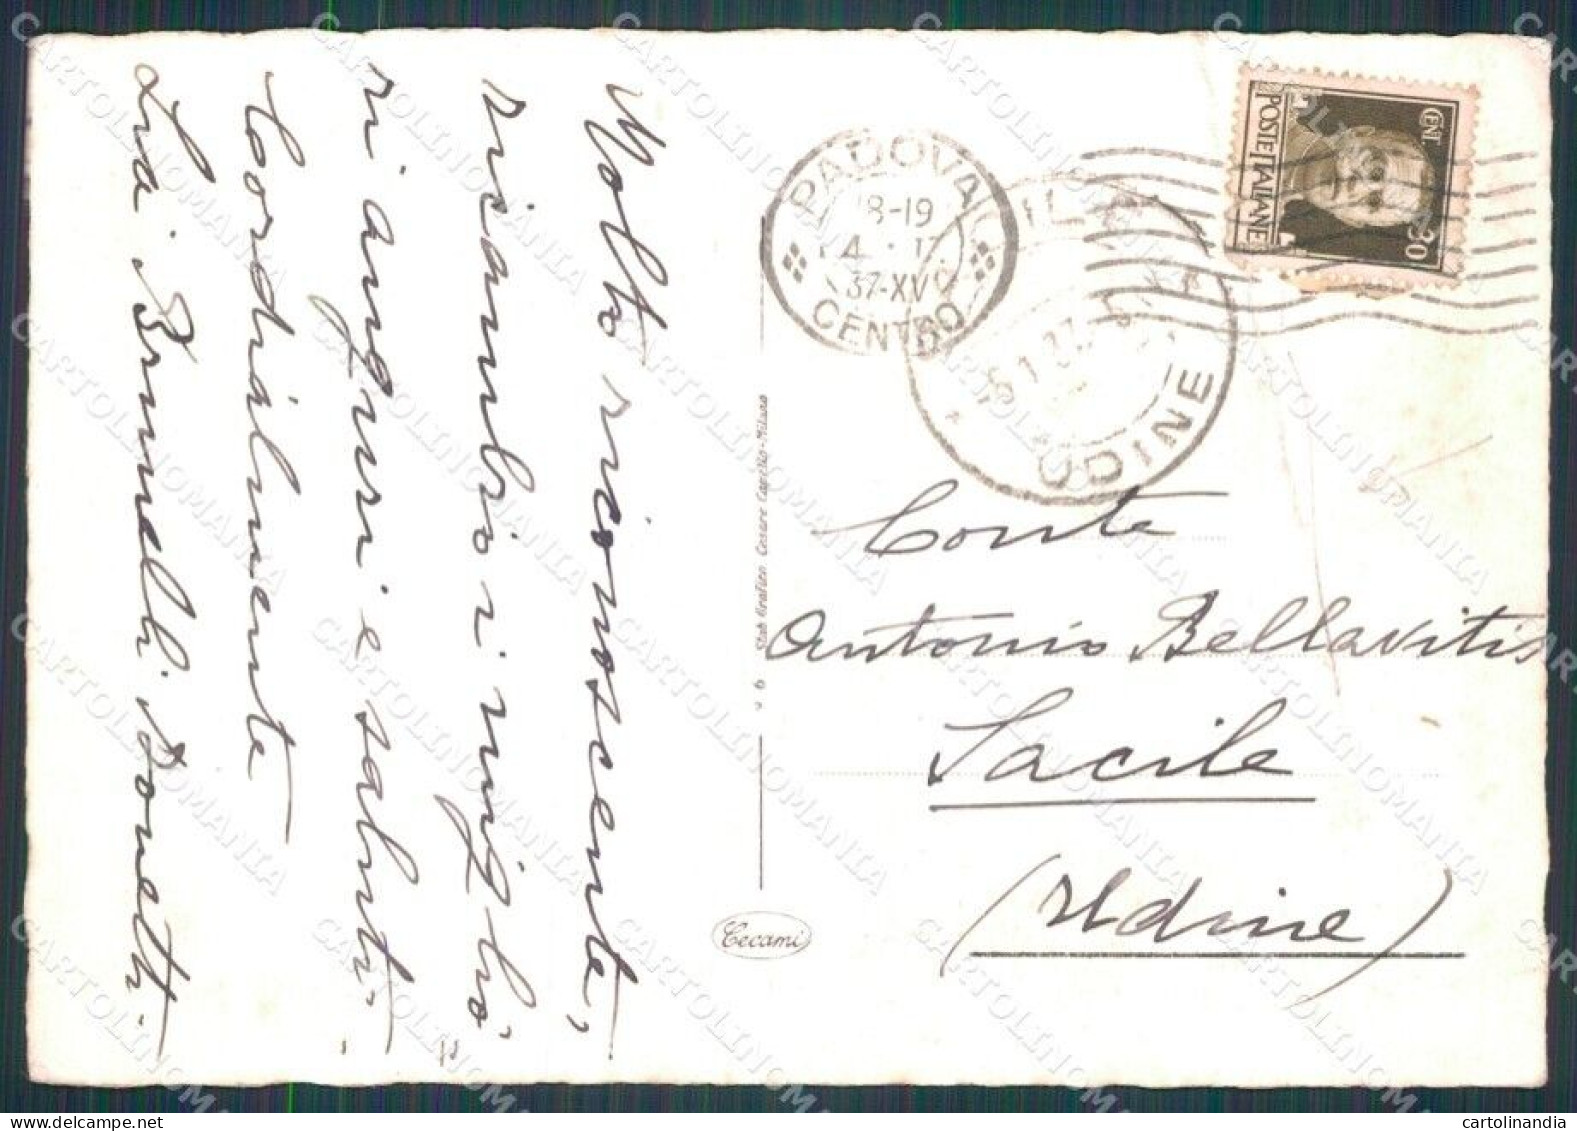 Molto riconoscente,
ricambio i migliori
ri auguri e saluti.
Cordialmente
Brunelli Bonetti.
PADOVA
18-19
37-XV
CENTRO
UDINE
CENT. 30
POSTE ITALIANE
Stab. Grafico Cesare Capello-Milano
Cecami
Conte
Antonio Bellavitis
Sacile
(Udine)
CARTOLINOMANIA
cartolinandia